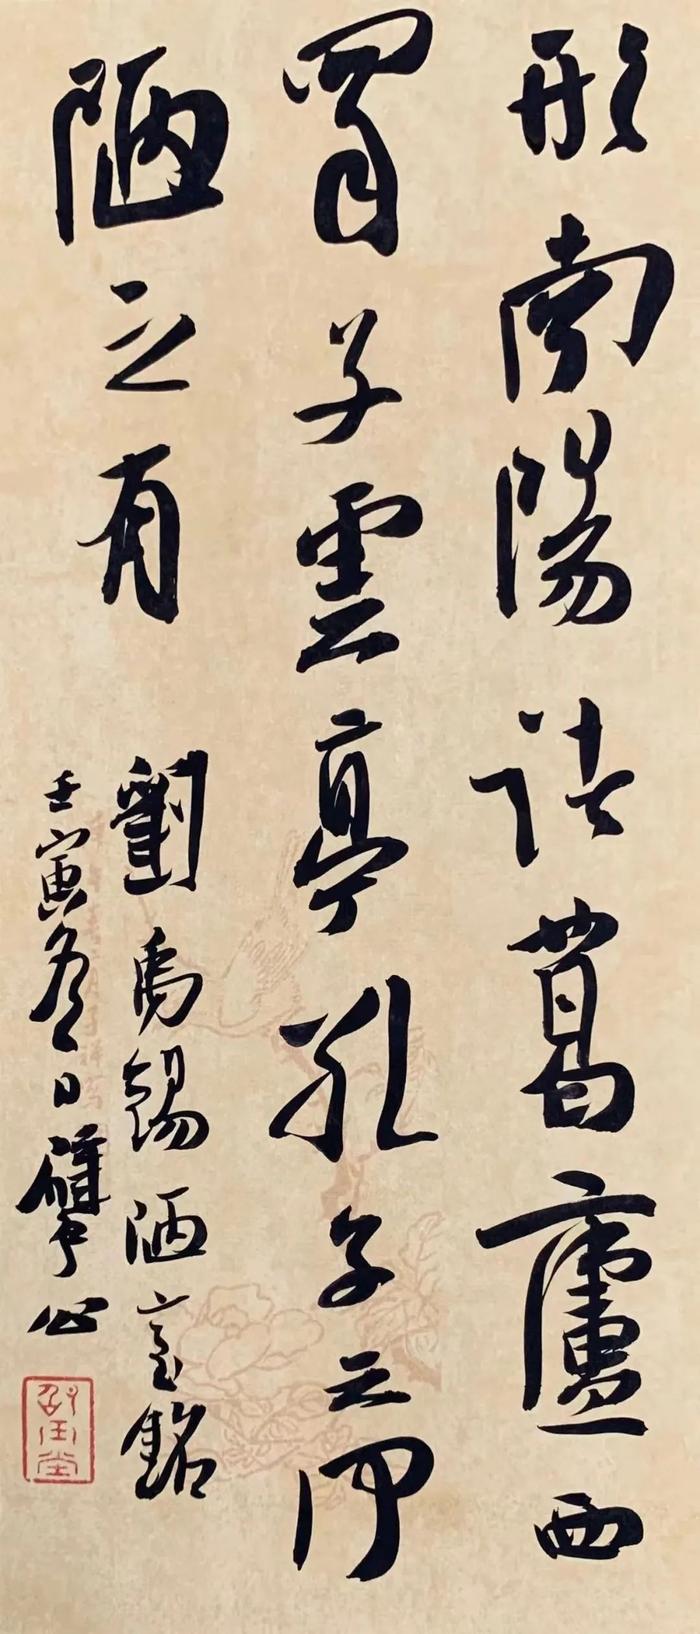 形南陽諸葛廬西
蜀子雲亭孔子云何
陋之有
劉禹錫陋室銘
壬寅冬日